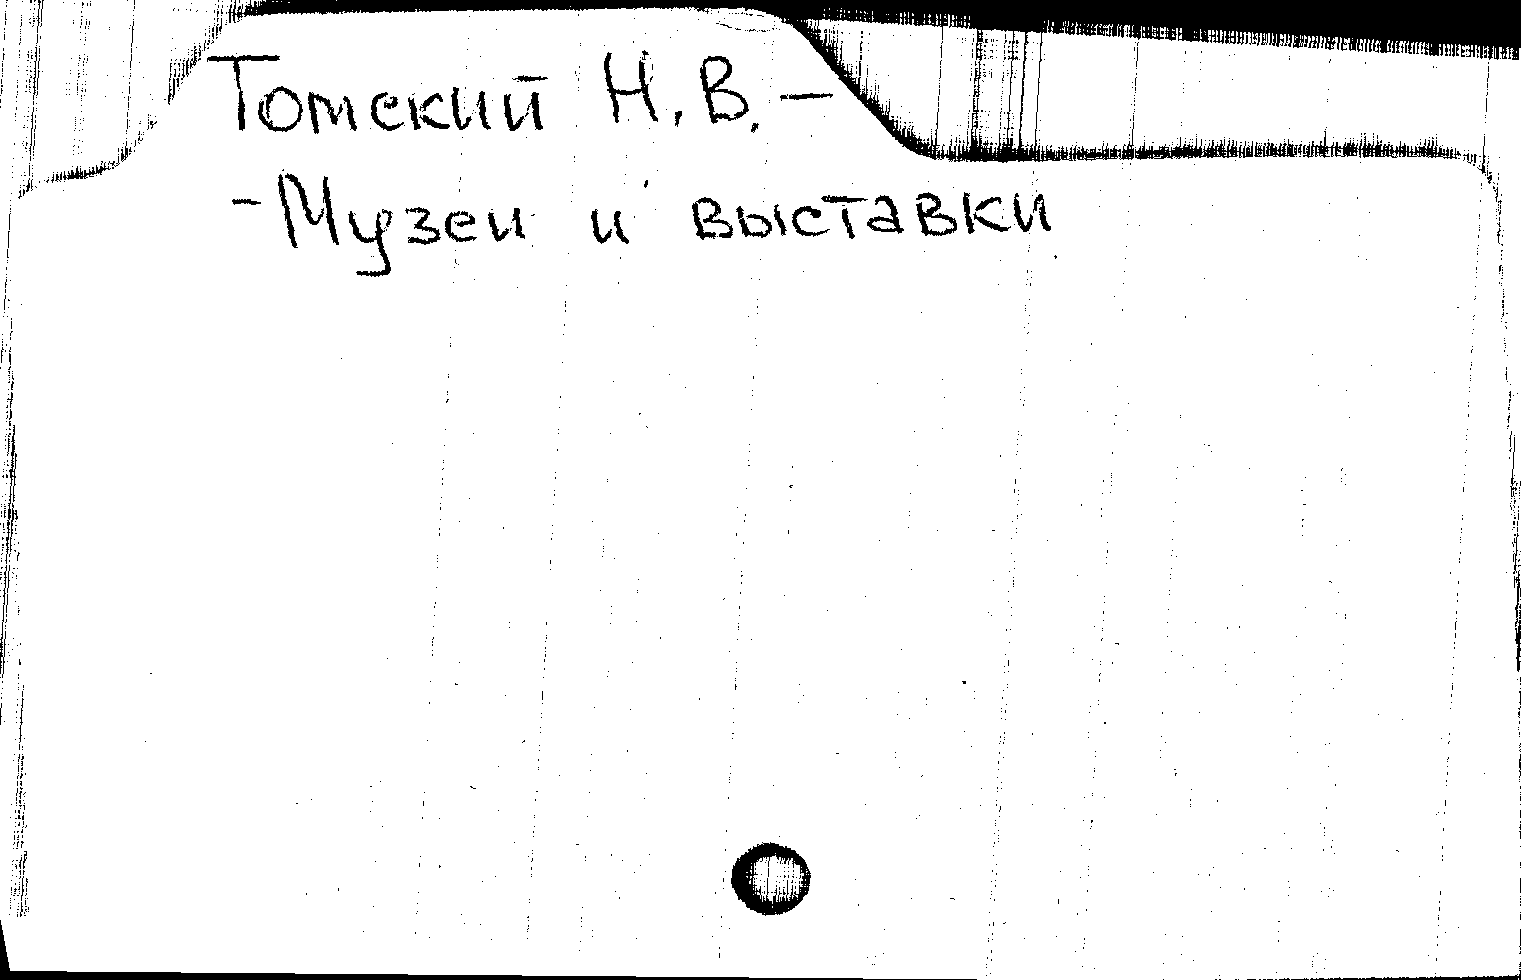 Томский Н.В.–
-Музеи и выставки